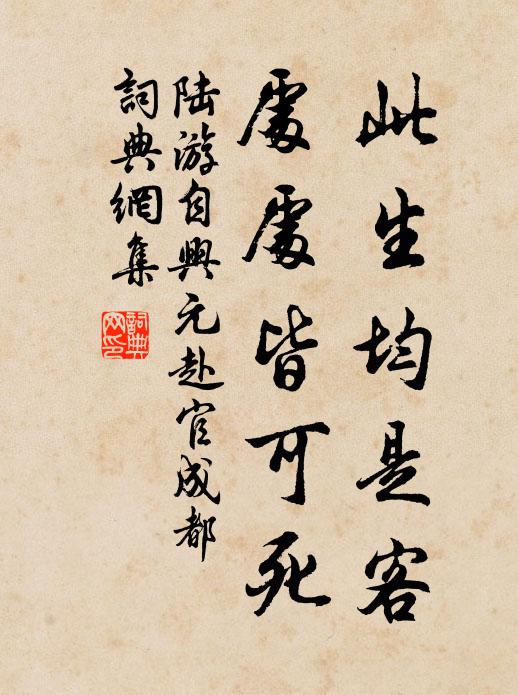 此生均是客
處處皆可死
陆游自興元赴官成都
詞典網集
詞典網印